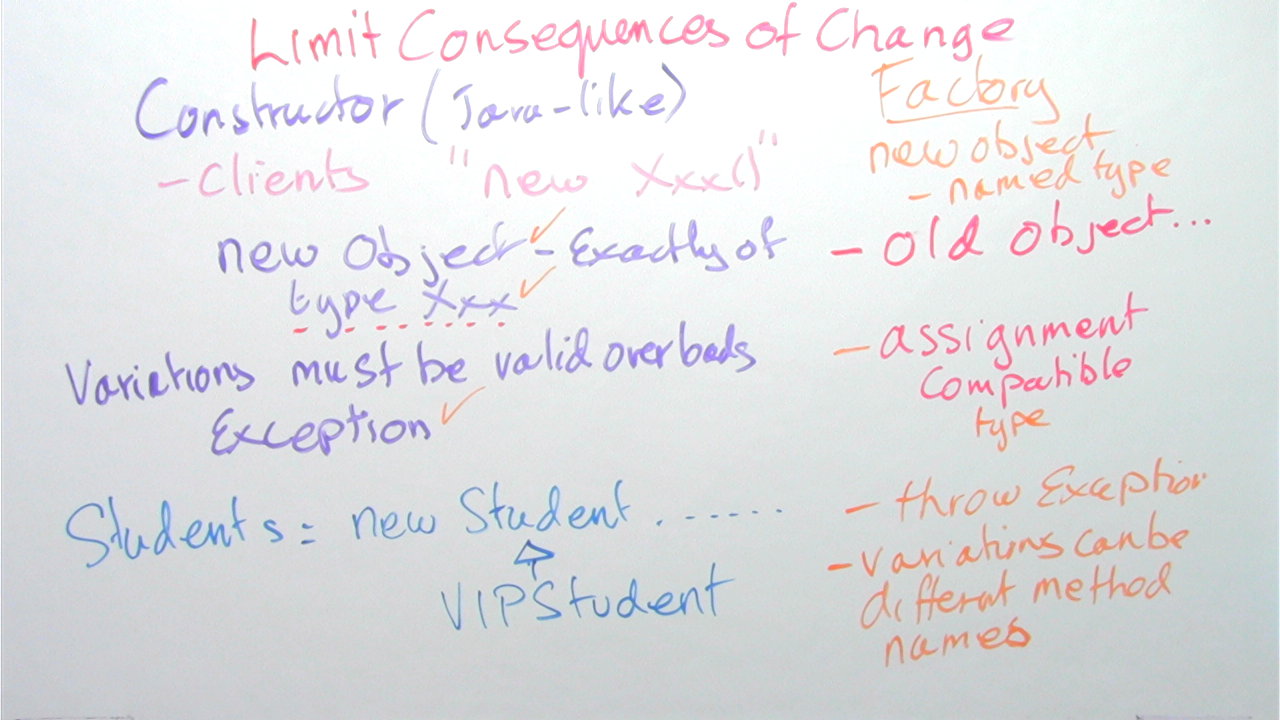 Limit Consequences of Change
Constructor (Java-like)
- Clients "new Xxx()"
new Object - Exactly of
type Xxx
Variations must be valid overloads
Exception
Student s = new Student . ......
VIPStudent
Factory
new object
- named type
- Old Object...
- assignment
compatible
type
- throw Exception
- Variations can be
different method
names